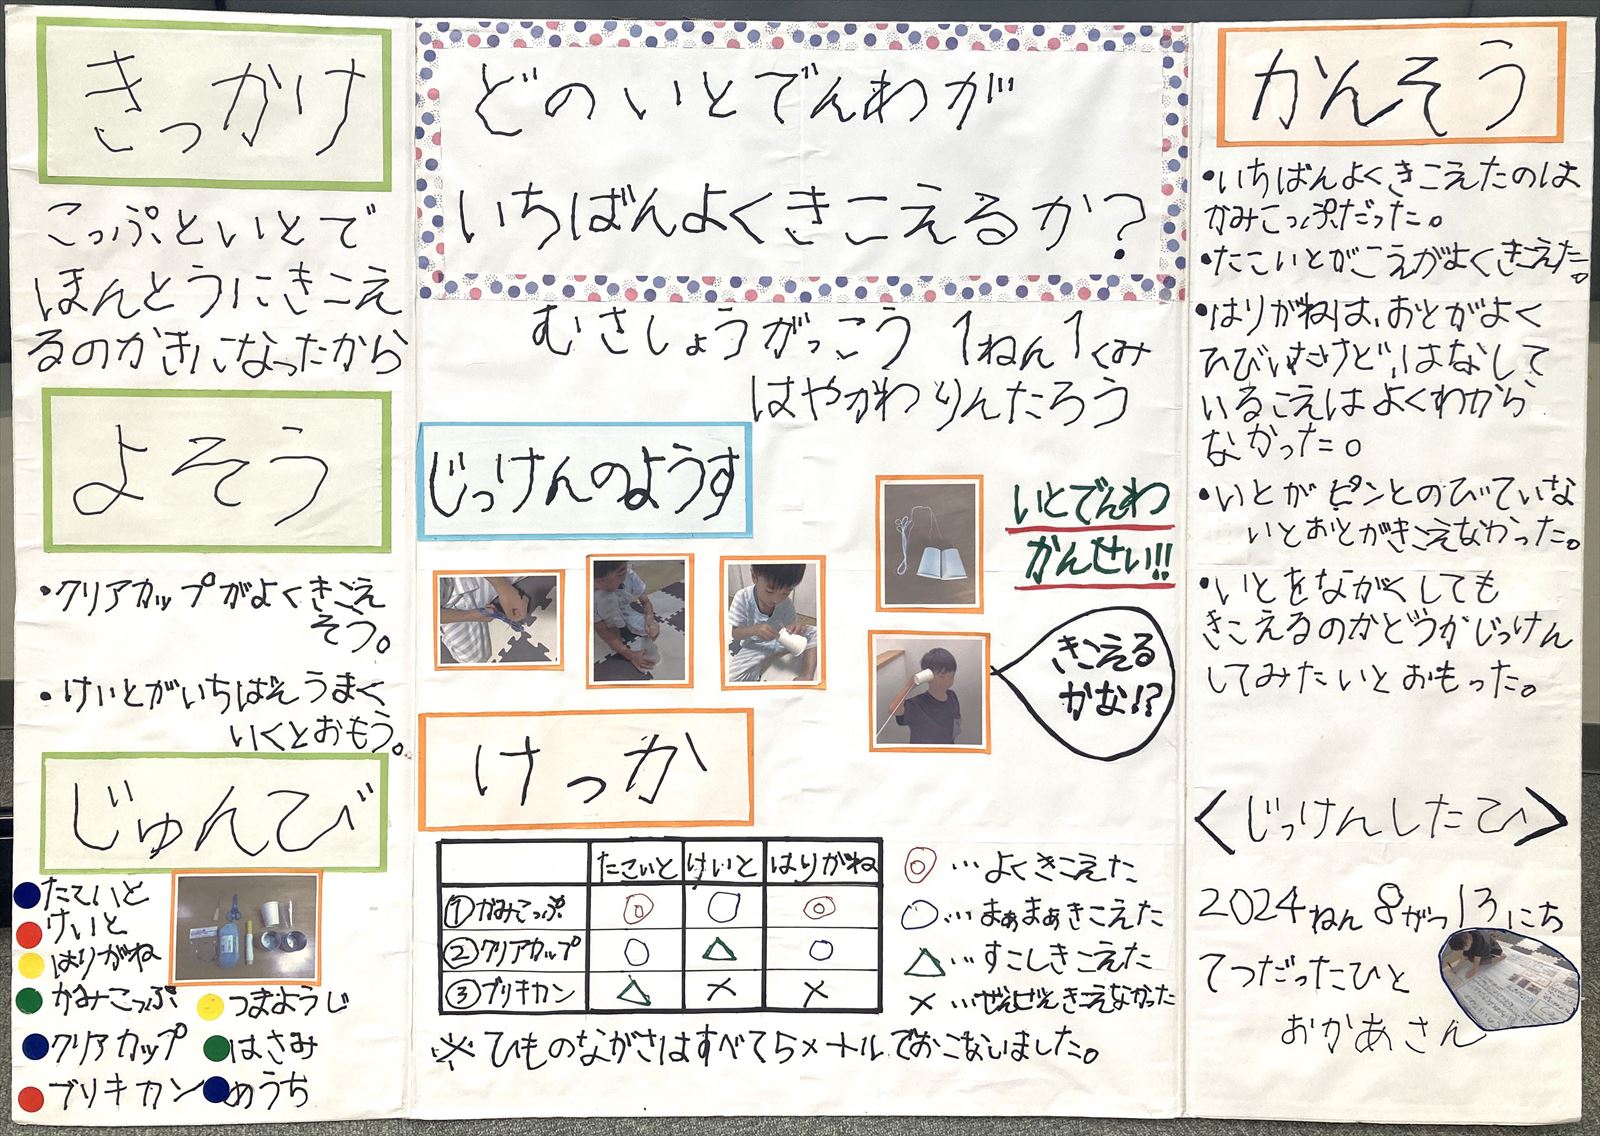 きっかけ
こっぷといとで
ほんとうにきこえ
るのがきになったから
よそう
・クリアカップがよくきこえ
そう。
・けいとがいちばんうまく
いくとおもう。
じゅんび
たこいと
けいと
はりがね
かみこっぷ
クリアカップ
ブリキカン
つまようじ
はさみ
めうち
どのいとでんわが
いちばんよくきこえるか？
むさしょうがっこう 1ねん1くみ
はやかわ りんたろう
じっけんのようす
いとでんわ
かんせい!!
きこえる
かな!?
けっか
たこいと けいと はりがね
①かみこっぷ ◎ ○ ◎
②クリアカップ ○ △ ○
③ブリキカン △ × ×
◎…よくきこえた
○…まぁまぁきこえた
△…すこしきこえた
×…ぜんぜんきこえなかった
※ひものながさはすべて5メートルでおこないました。
かんそう
・いちばんよくきこえたのは
かみこっぷだった。
・たこいとがこえがよくきこえた。
・はりがねは、おとがよく
ひびいたけど、はなして
いるこえはよくわから
なかった。
・いとがピンとのびていな
いとおとがきこえなかった。
・いとをながくしても
きこえるのかどうかじっけん
してみたいとおもった。
＜じっけんしたひ＞
2024ねん 8がつ13にち
てつだったひと
おかあさん